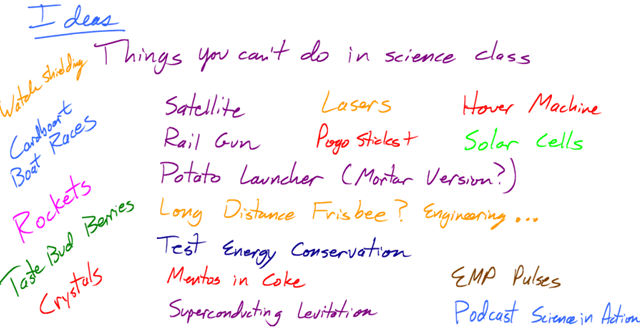 Ideas
Things you can't do in science class
Watch shielding
Cardboart
Boat Races
Rockets
Taste Bud Berries
Crystals
Satellite
Lasers
Hover Machine
Rail Gun
Pogo Stickst
Solar Cells
Potato Launcher (Mortar Version?)
Long Distance Frisbee? Engineering...
Test Energy Conservation
Mentos in Coke
EMP Pulses
Superconducting Levitation
Podcast Science in Action